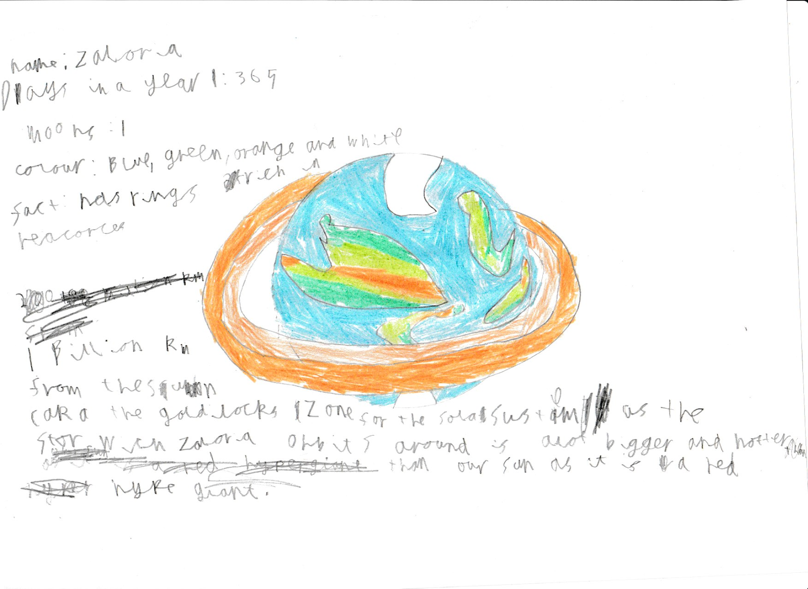 name: Zaloria
Days in a year: 365
moons: 1
colour: Blue, green, orange and white
fact: has rings rich in
reacorces
1 Billion Km
from the sun
(aka the goldilocks Zone for the solar sustim as the
star wich zaloria orbits around is alot bigger and hotter
than our sun as it is a red
hype giant.